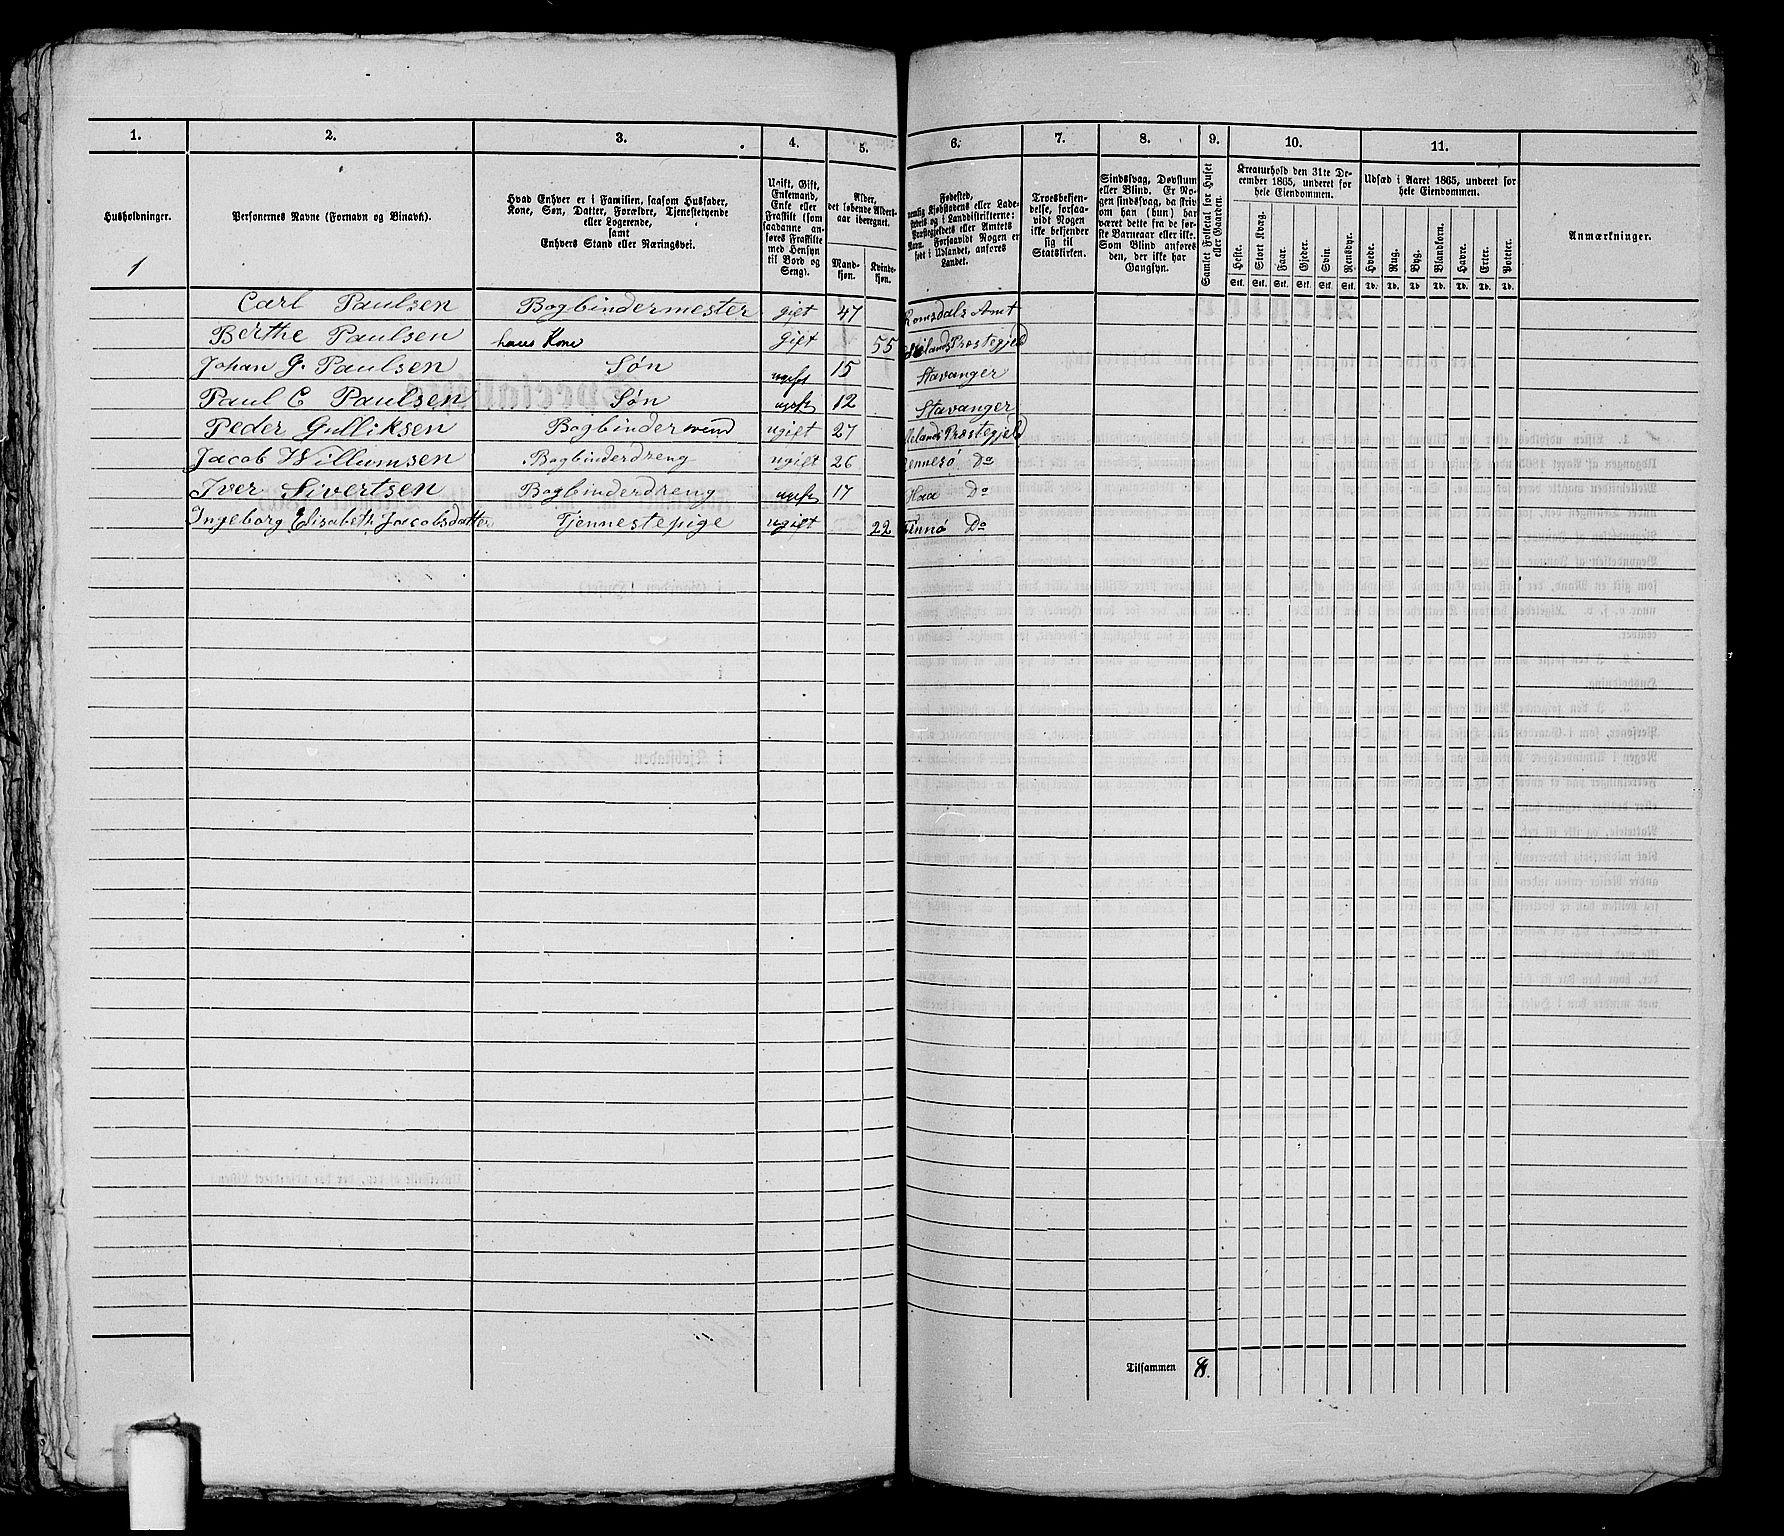 1. 2. 3. 4. 5. 6. 7. 8. 9. 10. 11.
Husholdninger.
Personernes Navne (Fornavn og Binavn).
Hvad Enhver er i Familien, saasom Husfader,
Kone, Søn, Datter, Forældre, Tjenestetyende
eller Logerende,
samt
Enhvers Stand eller Næringsvei.
Ugift, Gift,
Enkemand,
Enke eller
Fraskilt (som
saadanne an-
føres Fraskilte
med Hensyn
til Bord og
Seng).
Alder,
det løbende Alders-
aar iberegnet.
Mand-
kjøn.
Kvinde-
kjøn.
Fødested,
nemlig Kjøbstadens eller Lade-
stedets og i Landdistrikterne:
Præstegjeldets eller Amtets
Navn. Forsaavidt Nogen er
født i Udlandet, anføres
Landet.
Troesbekjen-
delse, forsaa-
vidt Nogen
ikke bekjender
sig til
Statskirken.
Sindssvag, Døvstum
eller Blind. Er No-
gen sindssvag, da skriv
om han (hun) har
været dette fra de før-
ste Barneaar eller ikke.
Som Blind anføres
den, der ikke har
Gangsyn.
Samlet Folketal for Huset
eller Gaarden.
Kreaturhold den 31te De-
cember 1865, underet for
hele Eiendommen.
Heste.
Stort Kvæg.
Faar.
Gjeder.
Svin.
Rensdyr.
Stk. Stk. Stk. Stk. Stk. Stk.
Udsæd i Aaret 1865, underet for
hele Eiendommen.
Hvede.
Rug.
Byg.
Blandkorn.
Havre.
Erter.
Poteter.
Td. Td. Td. Td. Td. Td. Td.
Anmærkninger.
1
Carl Paulsen Bogbindermester gift 47 Romsdals Amt
Berthe Paulsen hans Kone gift 55 Præstegjeld
Johan G. Paulsen Søn ugift 15 Stavanger
Paul C Paulsen Søn ugift 12 Stavanger
Peder Gulliksen Bogbindersvend ugift 27 Præstegjeld
Jacob Willumsen Bogbinderdreng ugift 26 Rennesø Do
Iver Sivertsen Bogbinderdreng ugift 17 Haa Do
Ingeborg Elisabeth Jacobsdatter Tjennestepige ugift 22 Finnø Do
Tilsammen 8.